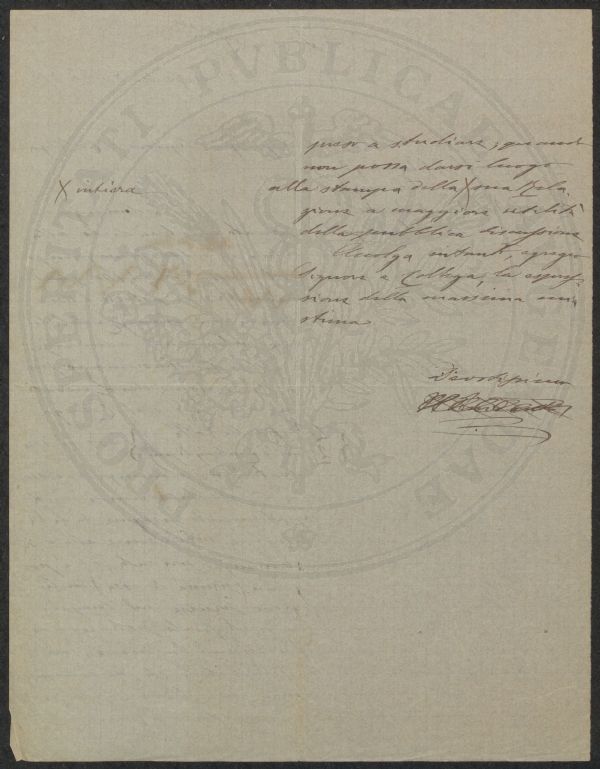 PROSPERITATI PVBLICAE AVGENDAE
preso a studiare, quando
non possa darsi luogo
X intiera
alla stampa della X sua Rela-
zione a maggiore utilità
della pubblica discussione
Accolga intanto, egregio
Signore e Collega, la espres-
sione della massima mia
stima
Devotissimo